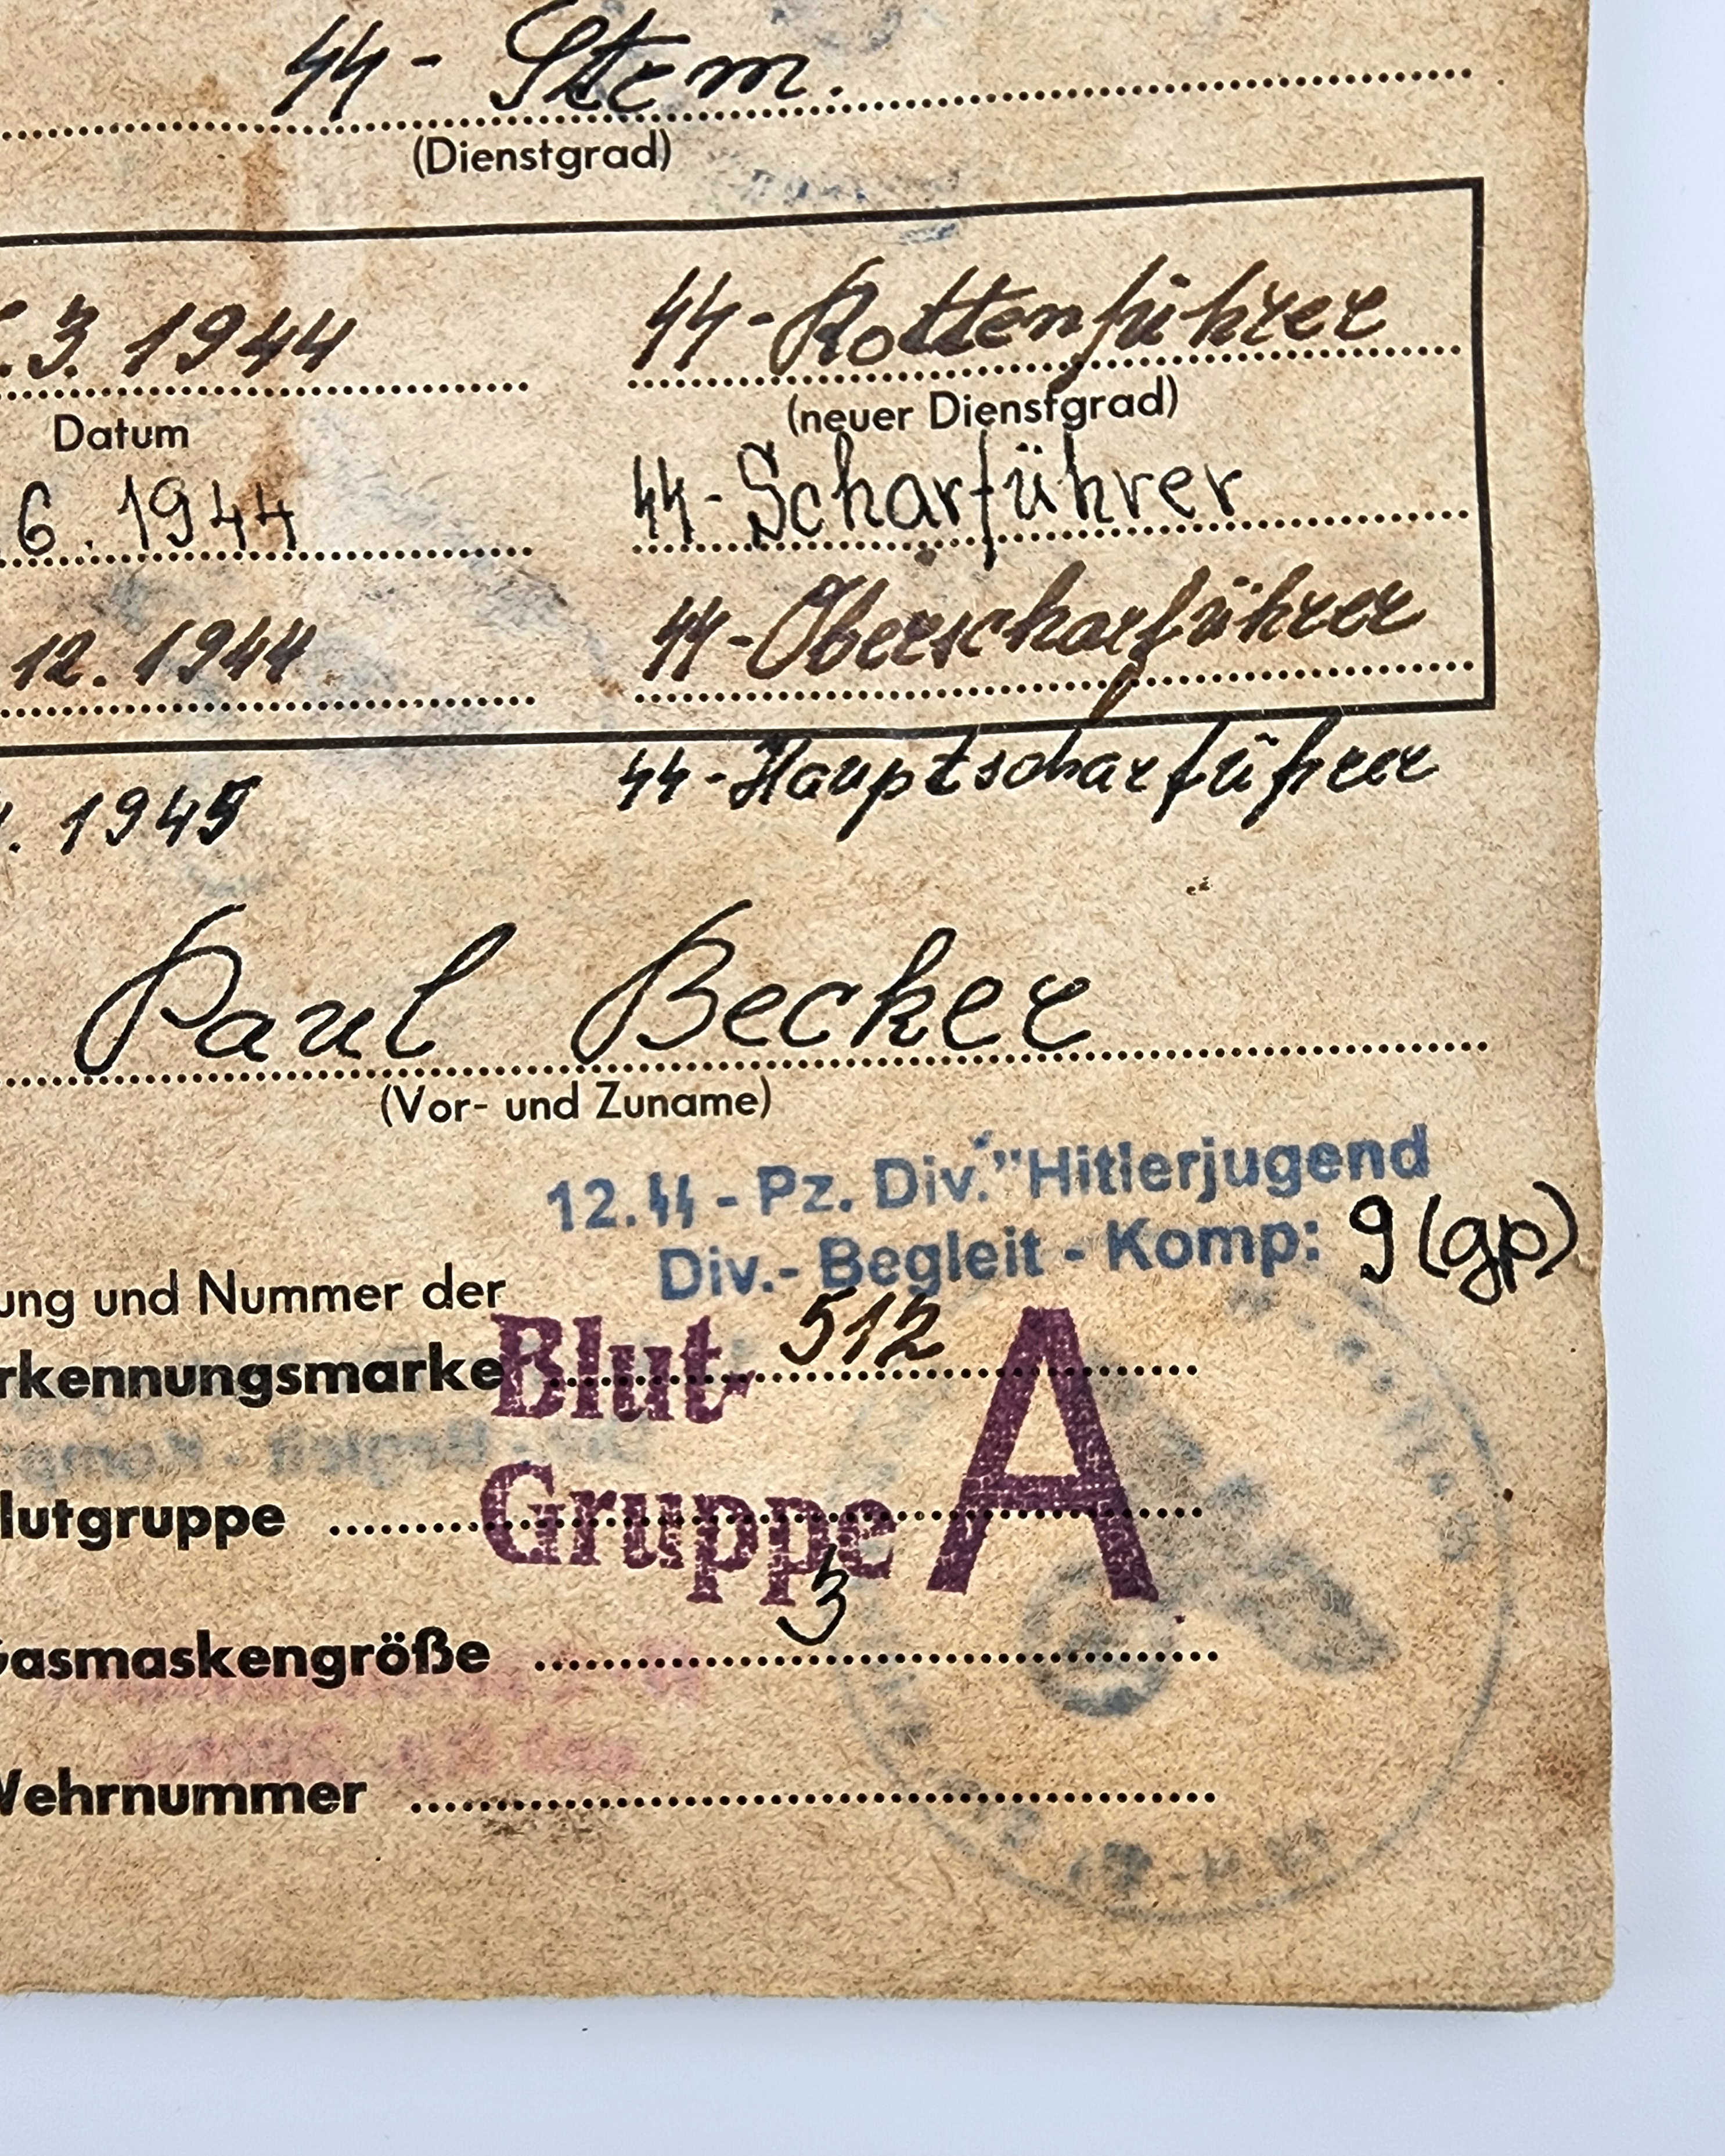 ᛋᛋ - Strm.
(Dienstgrad)
.3. 1944
ᛋᛋ-Rottenführer
Datum
(neuer Dienstgrad)
6. 1944
ᛋᛋ-Scharführer
12. 1944
ᛋᛋ-Oberscharführer
. 1945
ᛋᛋ-Hauptscharführer
Paul Becker
(Vor- und Zuname)
12. ᛋᛋ - Pz. Div. "Hitlerjugend
Div.- Begleit - Komp: 9 (gp)
ung und Nummer der
rkennungsmarke 512
Blut-
lutgruppe Gruppe A
asmaskengröße 3
Wehrnummer